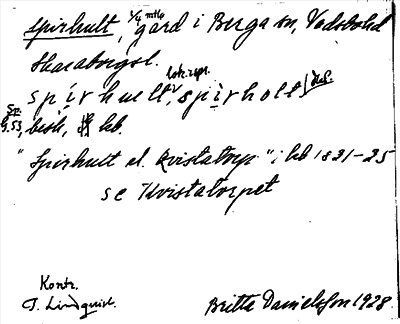 Spirhult, 1/4 mtl, gård i Berga sn, Vadsbo hd
Skaraborgsl.
lok. uppr.
spírhult, spìrholt
Gp.
G.53, besk, kb.
"Spirhult el. Kvistatorp" i hb 1831-35
se Kvistatorpet
Kontr.
I. Lindquist.
Britte Danielsson 1928.